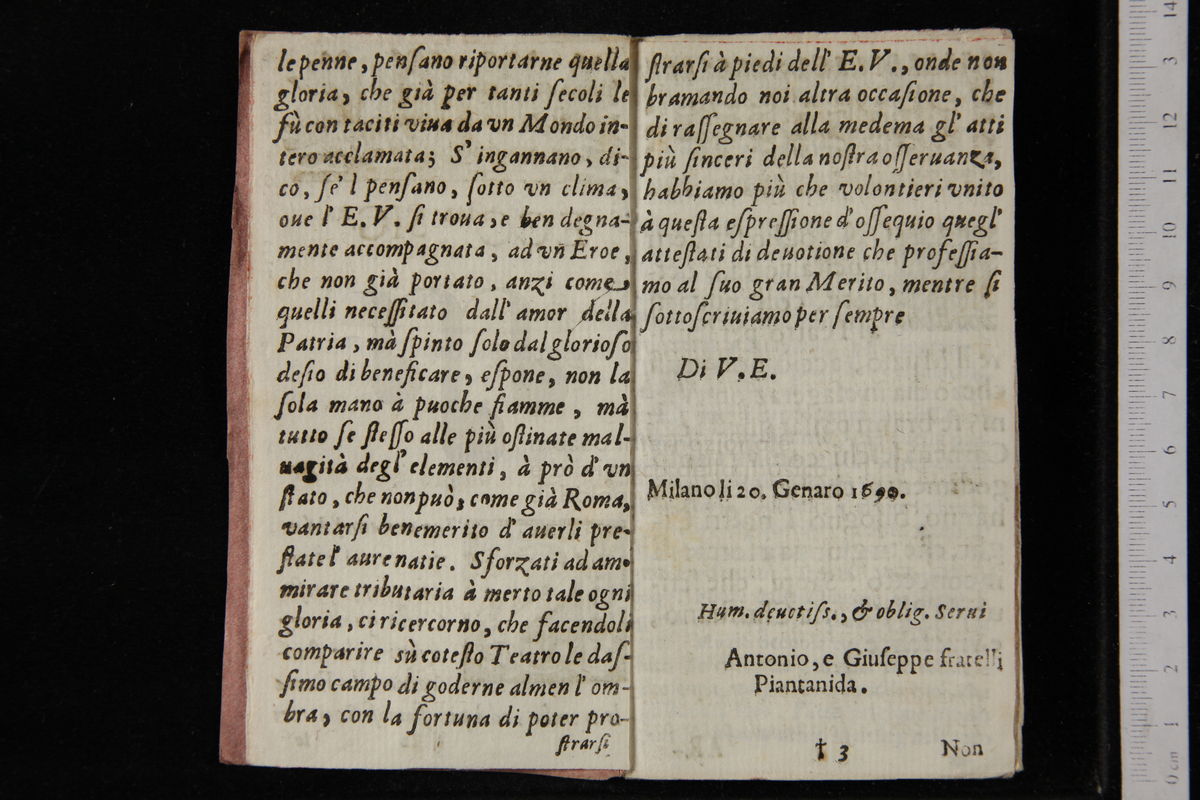 le penne, penſano riportarne quella
gloria, che già per tanti ſecoli le
fù con taciti viua da vn Mondo in-
tero acclamata; S' ingannano, di-
co, ſe' l penſano, ſotto vn clima,
oue l' E. V. ſi troua, e ben degna-
mente accompagnata, ad vn Eroe,
che non già portato, anzi come
quelli neceſſitato dall' amor della
Patria, mà ſpinto ſolo dal glorioſo
deſio di beneficare, eſpone, non la
ſola mano à puoche fiamme, mà
tutto ſe ſteſſo alle più oſtinate mal-
uagità degl' elementi, à prò d' vn
ſtato, che non può, come già Roma,
vantarſi benemerito d' auerli pre-
ſtate l' aure natie. Sforzati ad am-
mirare tributaria à merto tale ogni
gloria, ci ricercorno, che facendoli
comparire sù coteſto Teatro le daſ-
ſimo campo di goderne almen l' om-
bra, con la fortuna di poter pro-
ſtrarſi
ſtrarſi à piedi dell' E. V., onde non
bramando noi altra occaſione, che
di raſſegnare alla medema gl' atti
più ſinceri della noſtra oſſeruanza,
habbiamo più che volontieri vnito
à queſta eſpreſſione d' oſſequio quegl'
atteſtati di deuotione che profeſſia-
mo al ſuo gran Merito, mentre ſi
ſottoſcriuiamo per ſempre
Di V. E.
Milano li 20. Genaro 1690.
Hum. deuotiſs., & oblig. Serui
Antonio, e Giuſeppe fratelli
Piantanida.
† 3 Non
14
3
12
11
10
9
8
7
6
5
4
3
2
1
0 cm